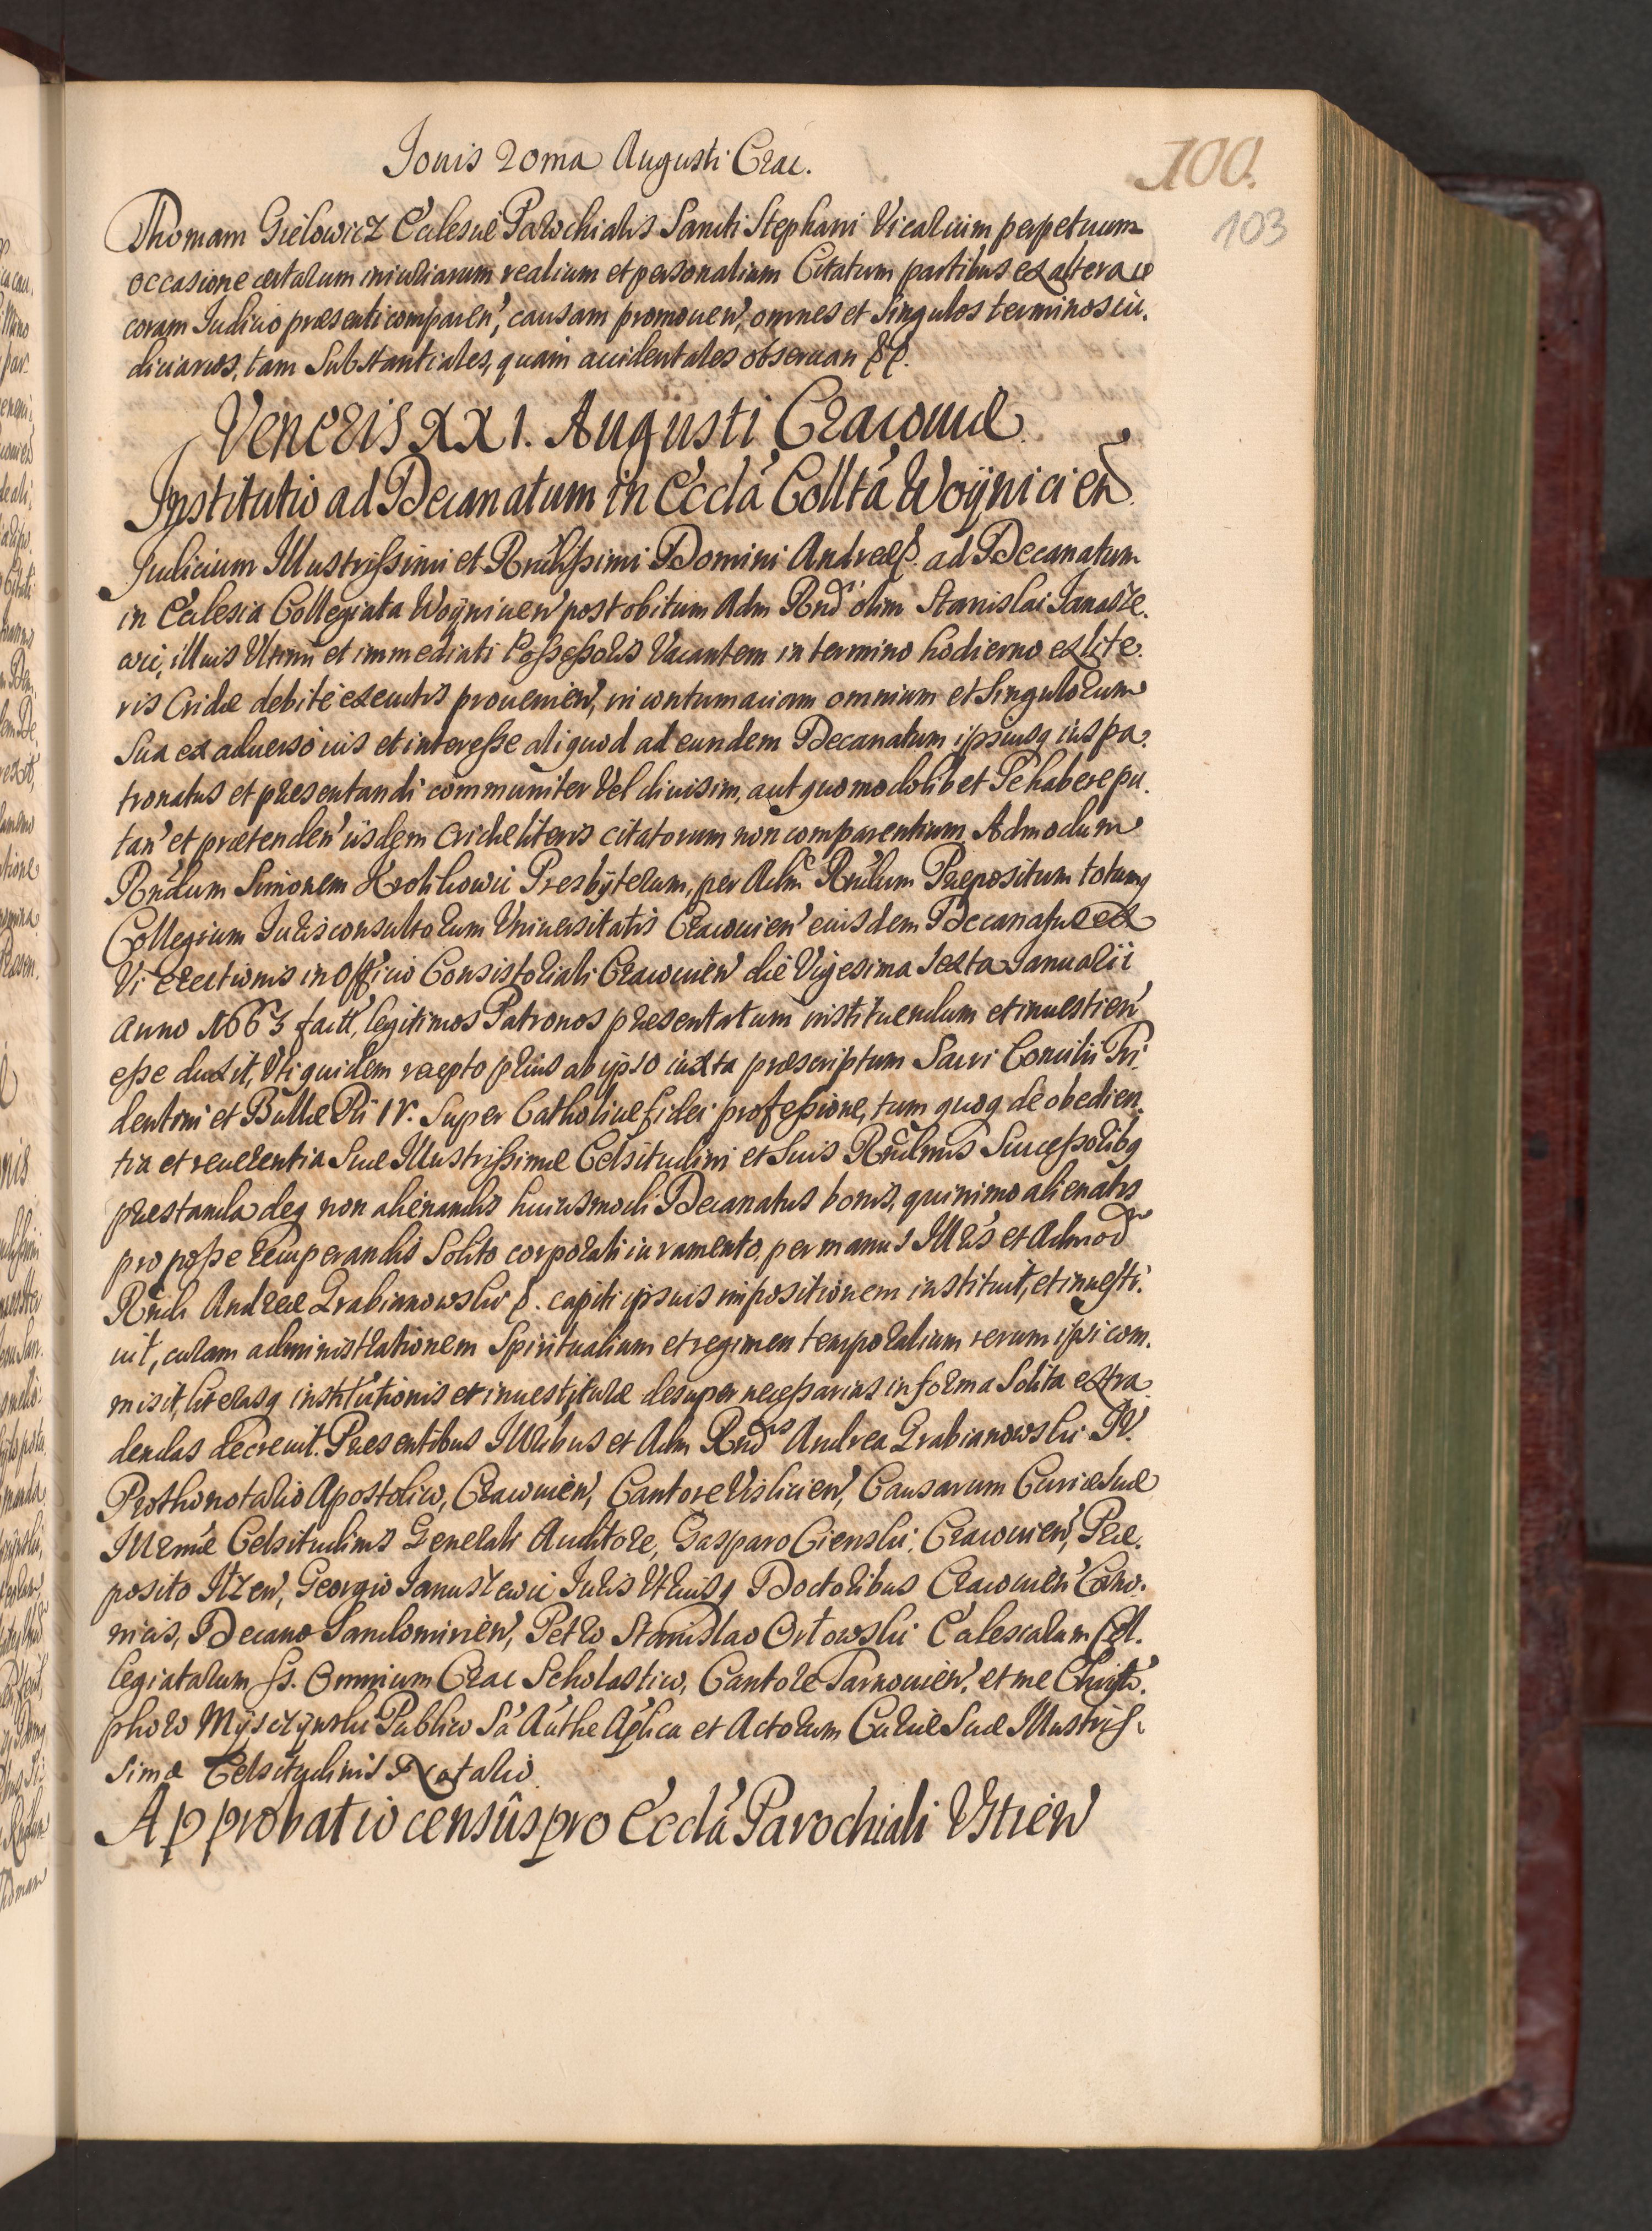 Iouis 20ma Augusti Crac.
100.
103
Thomam Gielowicz Ecclesiæ Parochialis Sancti Stephani Vicarium perpetuum
occasione certarum iniuriarum realium et personalium Citatum partibus ex altera
coram Iudicio præsenti comparen', causam promouen', omnes et singulos terminos iu.
diciarios, tam Substantiales, quam accidentales obseruan
Veneris XXI. Augusti Cracouiæ
Institutio ad Decanatum in Eccla Collta Woÿnicien
Iudicium Illustrissimi et Rndissimi Domini Andreæ p. ad Decanatum
in Ecclesia Collegiata Woÿnicien' post obitum Adm Rnd olim Stanislai Ianasze.
wic, illius Vltimi et immediati Possessoris Vacantem in termino hodierno ex lite.
ris Cridæ debite executis prouenien', in contumaciam omnium et singulorum
sua ex aduerso ius et interesse aliquod ad eundem Decanatum ipsiusq ius pa.
tronatus et præsentandi communiter Vel diuisim, aut quomodolibet se habere pu.
tan' et prætenden' iisdem Cridæ literis citatorum non comparentium Admodum
Rndum Simonem Presbÿterum, per Adm Rndum Præpositum totumq
Collegium Iurisconsultorum Vniuersitatis Cracouien' eiusdem Decanatus ex
Vi erectionis in Officio Consistoriali Cracouien' die Vigesima sexta Ianuarii
anno 1663 fact, legitimos Patronos præsentatum instituendum et inuestien'
esse duxit, Vti quidem recepto prius ab ipso iuxta præscriptum Sacri Concilii Tri.
dentini et Bullæ Pii IV. super Catholicæ fidei professione, tum quoq de obedien.
tia et reuerentia Suæ Illustrissimæ Celsitudini et Suis Rndmis Successoribq
præstanda deq non alienandis huiusmodi Decanatus bonis, quinimo alienatis
pro posse recuperandis solito corporali iuramento, per manus Illris et Admod
Rndi Andreæ Grabianowski p. capiti ipsius impositionem instituit, et inuesti.
uit, curam administrationem Spiritualium et regimen temporalium rerum ipsi com.
misit, literasq institutionis et inuestituræ desuper necessarias in forma solita extra.
dendas decreuit. Præsentibus Illribus et Adm Rndis Andrea Grabianowski IV.
Prothonotario Apostolico, Cracouien', Cantore Vislicien', Causarum Curiæ Suæ
Illrmæ Celsitudinis Generali Auditore, Gasparo Cienski, Cracouien', Præ.
posito Ilzen', Georgio Ianuszewic Iuris Vtriusq Doctoribus Cracouien' Cano.
nicis, Decano Sandomirien', Petro Stanislao Orłowski Ecclesiarum Col.
legiatarum SS. Omnium Crac Scholastico, Cantore Tarnouien', et me Christo.
phoro Mÿsczÿnski Publico Sa Authe Aplica et Actorum Curiæ Suæ Illustris.
simæ Celsitudinis Notario.
Approbatio censûs pro Eccla Parochiali Vstien'